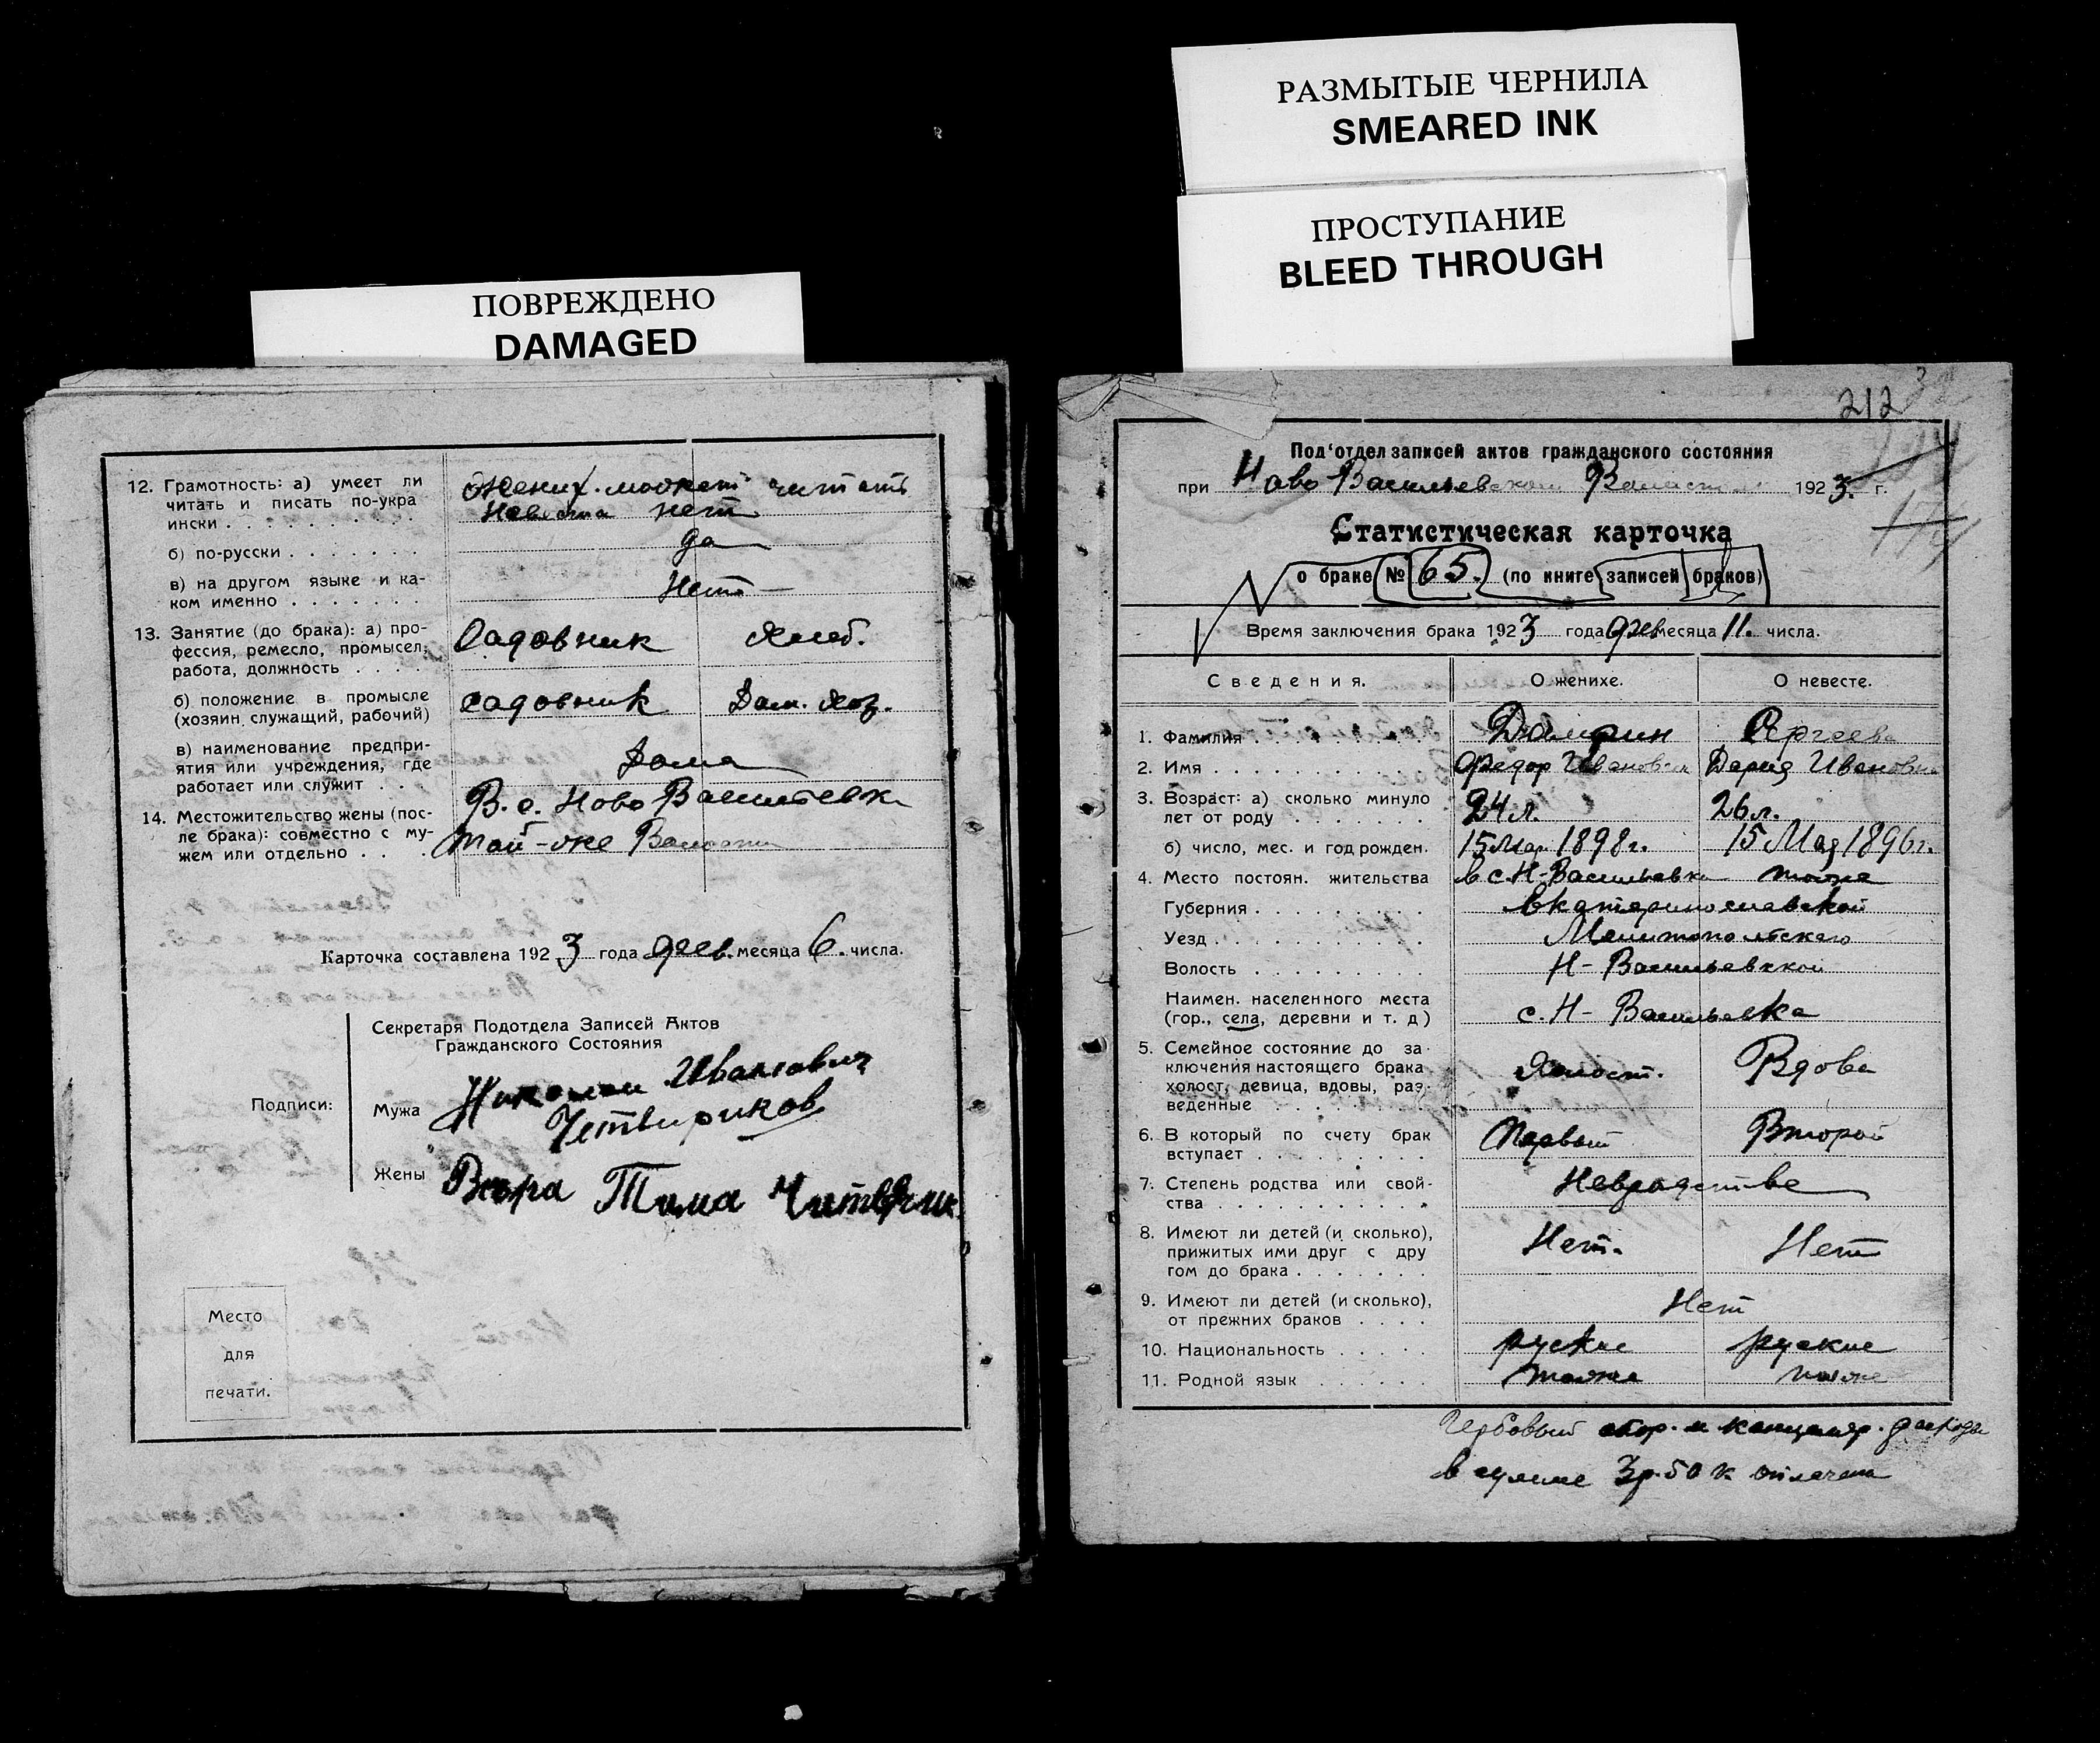 ПОВРЕЖДЕНО
DAMAGED
12. Грамотность: а) умеет ли
читать и писать по-укра
ински . . . . . . . . . .
Жених может читать
Невеста нет
б) по-русски . . . . . . . да
в) на другом языке и ка-
ком именно . . . . . . . Нет
13. Занятие (до брака): а) про-
фессия, ремесло, промысел,
работа, должность . . . .
Садовник Хлеб.
б) положение в промысле
(хозяин, служащий, рабочий)
садовник Дом. хоз.
в) наименование предпри-
ятия или учреждения, где
работает или служит . . .
Дома
14. Местожительство жены (пос-
ле брака): совместно с му-
жем или отдельно . . . .
В. с. Ново Васильевки
той-же Волости
Карточка составлена 1923 года фев. месяца 6. числа.
Секретаря Подотдела Записей Актов
Гражданского Состояния
Подписи:
Мужа Николай Иванович
Четвириков
Жены
Место
для
печати.
РАЗМЫТЫЕ ЧЕРНИЛА
SMEARED INK
ПРОСТУПАНИЕ
BLEED THROUGH
212
Под'отдел записей актов гражданского состояния
при Ново Васильевской Волости 1923. г.
174
Статистическая карточка
о браке № 65. (по книге записей браков)
Время заключения брака 1923 года фев месяца 11. числа.
Сведения. О женихе. О невесте.
1. Фамилия . . . . . . . . . Сергеева
2. Имя . . . . . . . . . . . Федор Иванович Дария Ивановна
3. Возраст: а) сколько минуло
лет от роду . . . . . . . 24 л. 26 л.
б) число, мес. и год рожден. 15 Мар 1898 г. 15 Мая 1896 г.
4. Место постоян. жительства в с. Н-Васильевки тоже
Губерния . . . . . . . . . Екатеринославской
Уезд . . . . . . . . . . . Мелитопольского
Волость . . . . . . . . . Н-Васильевской
Наимен. населенного места
(гор., села, деревни и т. д) с. Н-Васильевка
5. Семейное состояние до за-
ключения настоящего брака
холост, девица, вдовы, раз-
веденные . . . . . . . .
Холост. Вдова
6. В который по счету брак
вступает . . . . . . . . .
Первый Второй
7. Степень родства или свой-
ства . . . . . . . . . . .
Невродстве
8. Имеют ли детей (и сколько),
прижитых ими друг с дру
гом до брака . . . . . . .
Нет. Нет
9. Имеют ли детей (и сколько),
от прежних браков . . . .
Нет
10. Национальность . . . . . руские руские
11. Родной язык . . . . . . тоже тоже
Гербовый сбор и канцеляр. расходы
в сумме 3 р. 50 к оплачена